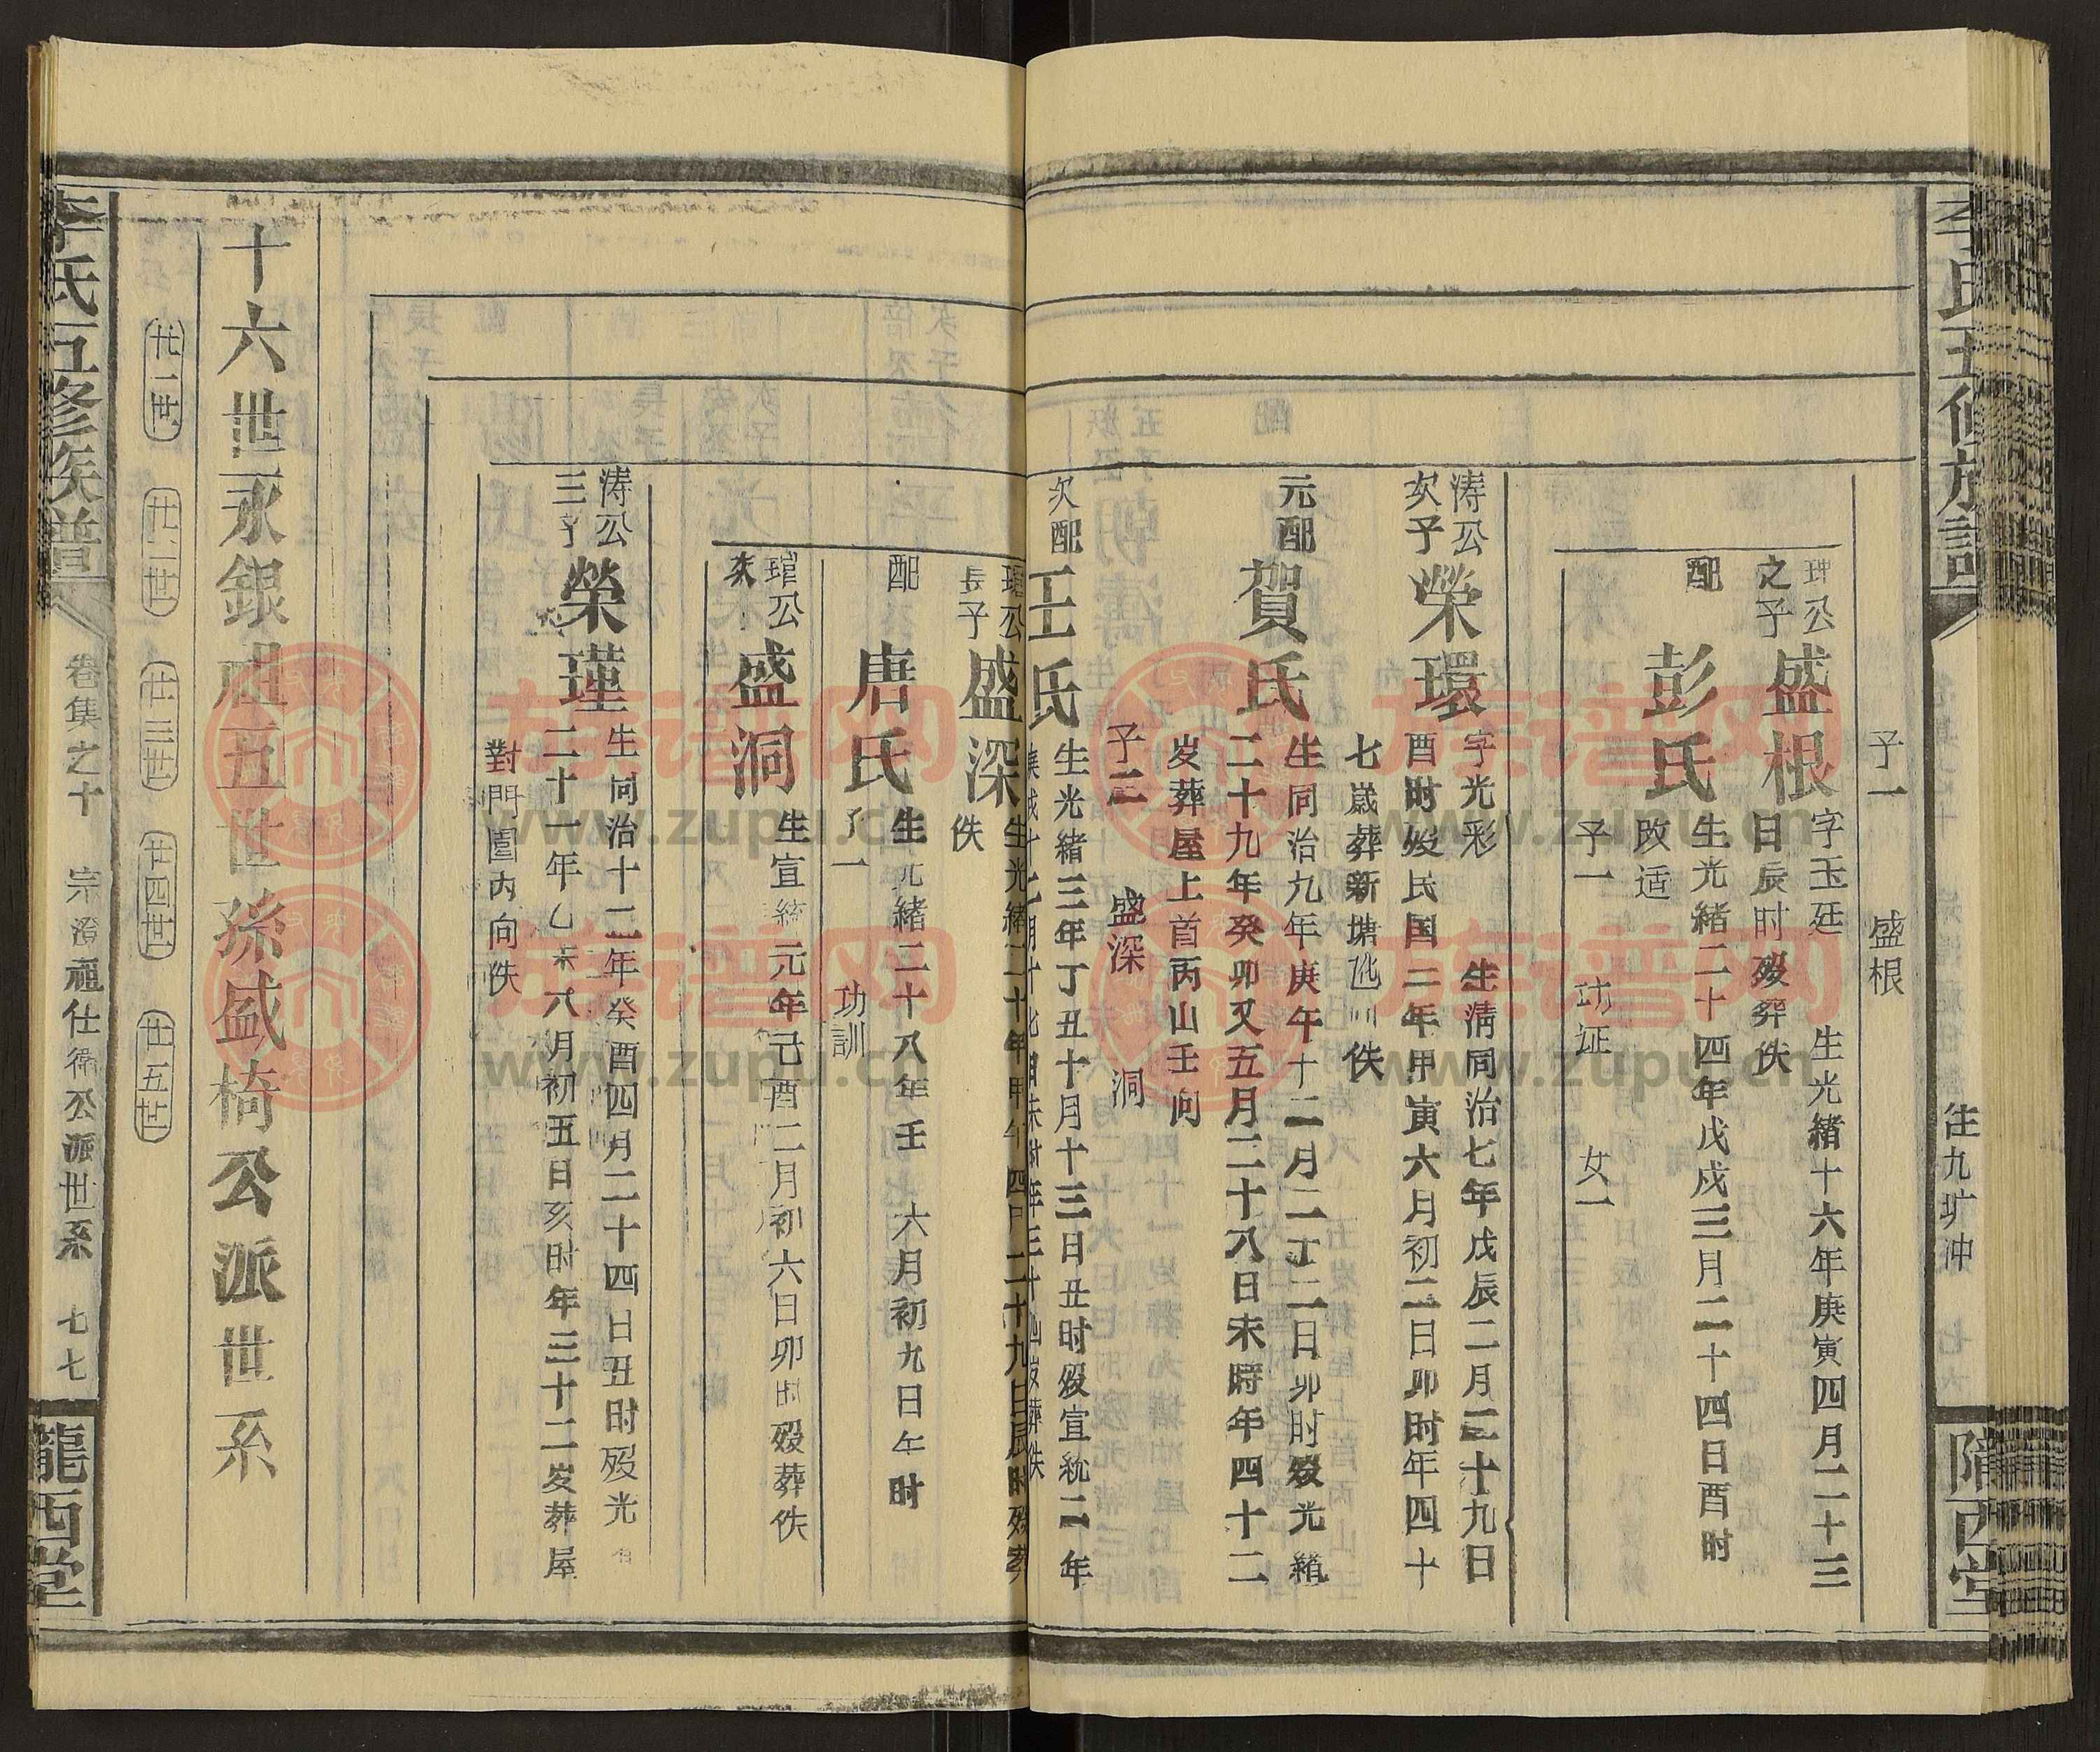 李氏五修族譜
住九圹冲
隴西堂
子一 盛根
珅公之子 盛根 字玉廷 生光緒十六年庚寅四月二十三
日辰时殁葬佚
配 彭氏 生光緒二十四年戊戍三月二十四日酉时
改适
子一 功证 女一
涛公次子 榮環 字光彩 生清同治七年戊辰二月二十九日
酉时殁民国二年甲寅六月初二日卯时年四十
七歲葬新塘 佚
元配 賀氏 生同治九年庚午十二月二 二日卯时殁光緒
二十九年癸卯又五月二十八日未時年四十二
岁葬屋上首丙山壬向
子二 盛深 洞
次配 王氏 生光緒三年丁丑十月十三日丑时殁宣統二年
長子 盛深 生光緒二十年甲午四 二十九日辰时殁葬
佚
配 唐氏 生光緒二十八年壬 六月初九日午时
子一 功訓
琯公 盛洞 生宣統元年己酉二月初六日卯时殁葬佚
涛公三子 榮瑾 生同治十二年癸酉四月二十四日丑时殁光
二十一年乙未八月初五日亥时年三十二岁葬屋
對門園内向佚
十六世永銀祖五世孫盛椅公派世系
廿一世 廿二世 廿三世 廿四世 廿五世
李氏五修族譜
卷集之十 宗 祖仕 公派世系 七七
隴西堂
族谱网
www.zupu.cn
族谱网
www.zupu.cn
族谱网
www.zupu.cn
族谱网
www.zupu.cn